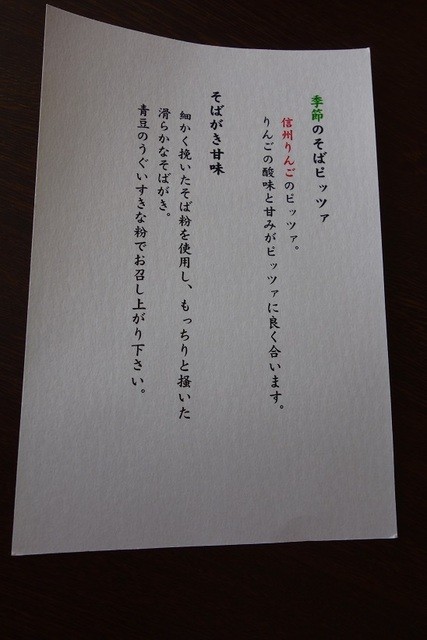 季節のそばピッツァ
信州りんごのピッツァ。
りんごの酸味と甘みがピッツァに良く合います。
そばがき甘味
細かく挽いたそば粉を使用し、もっちりと掻いた
滑らかなそばがき。
青豆のうぐいすきな粉でお召し上がり下さい。